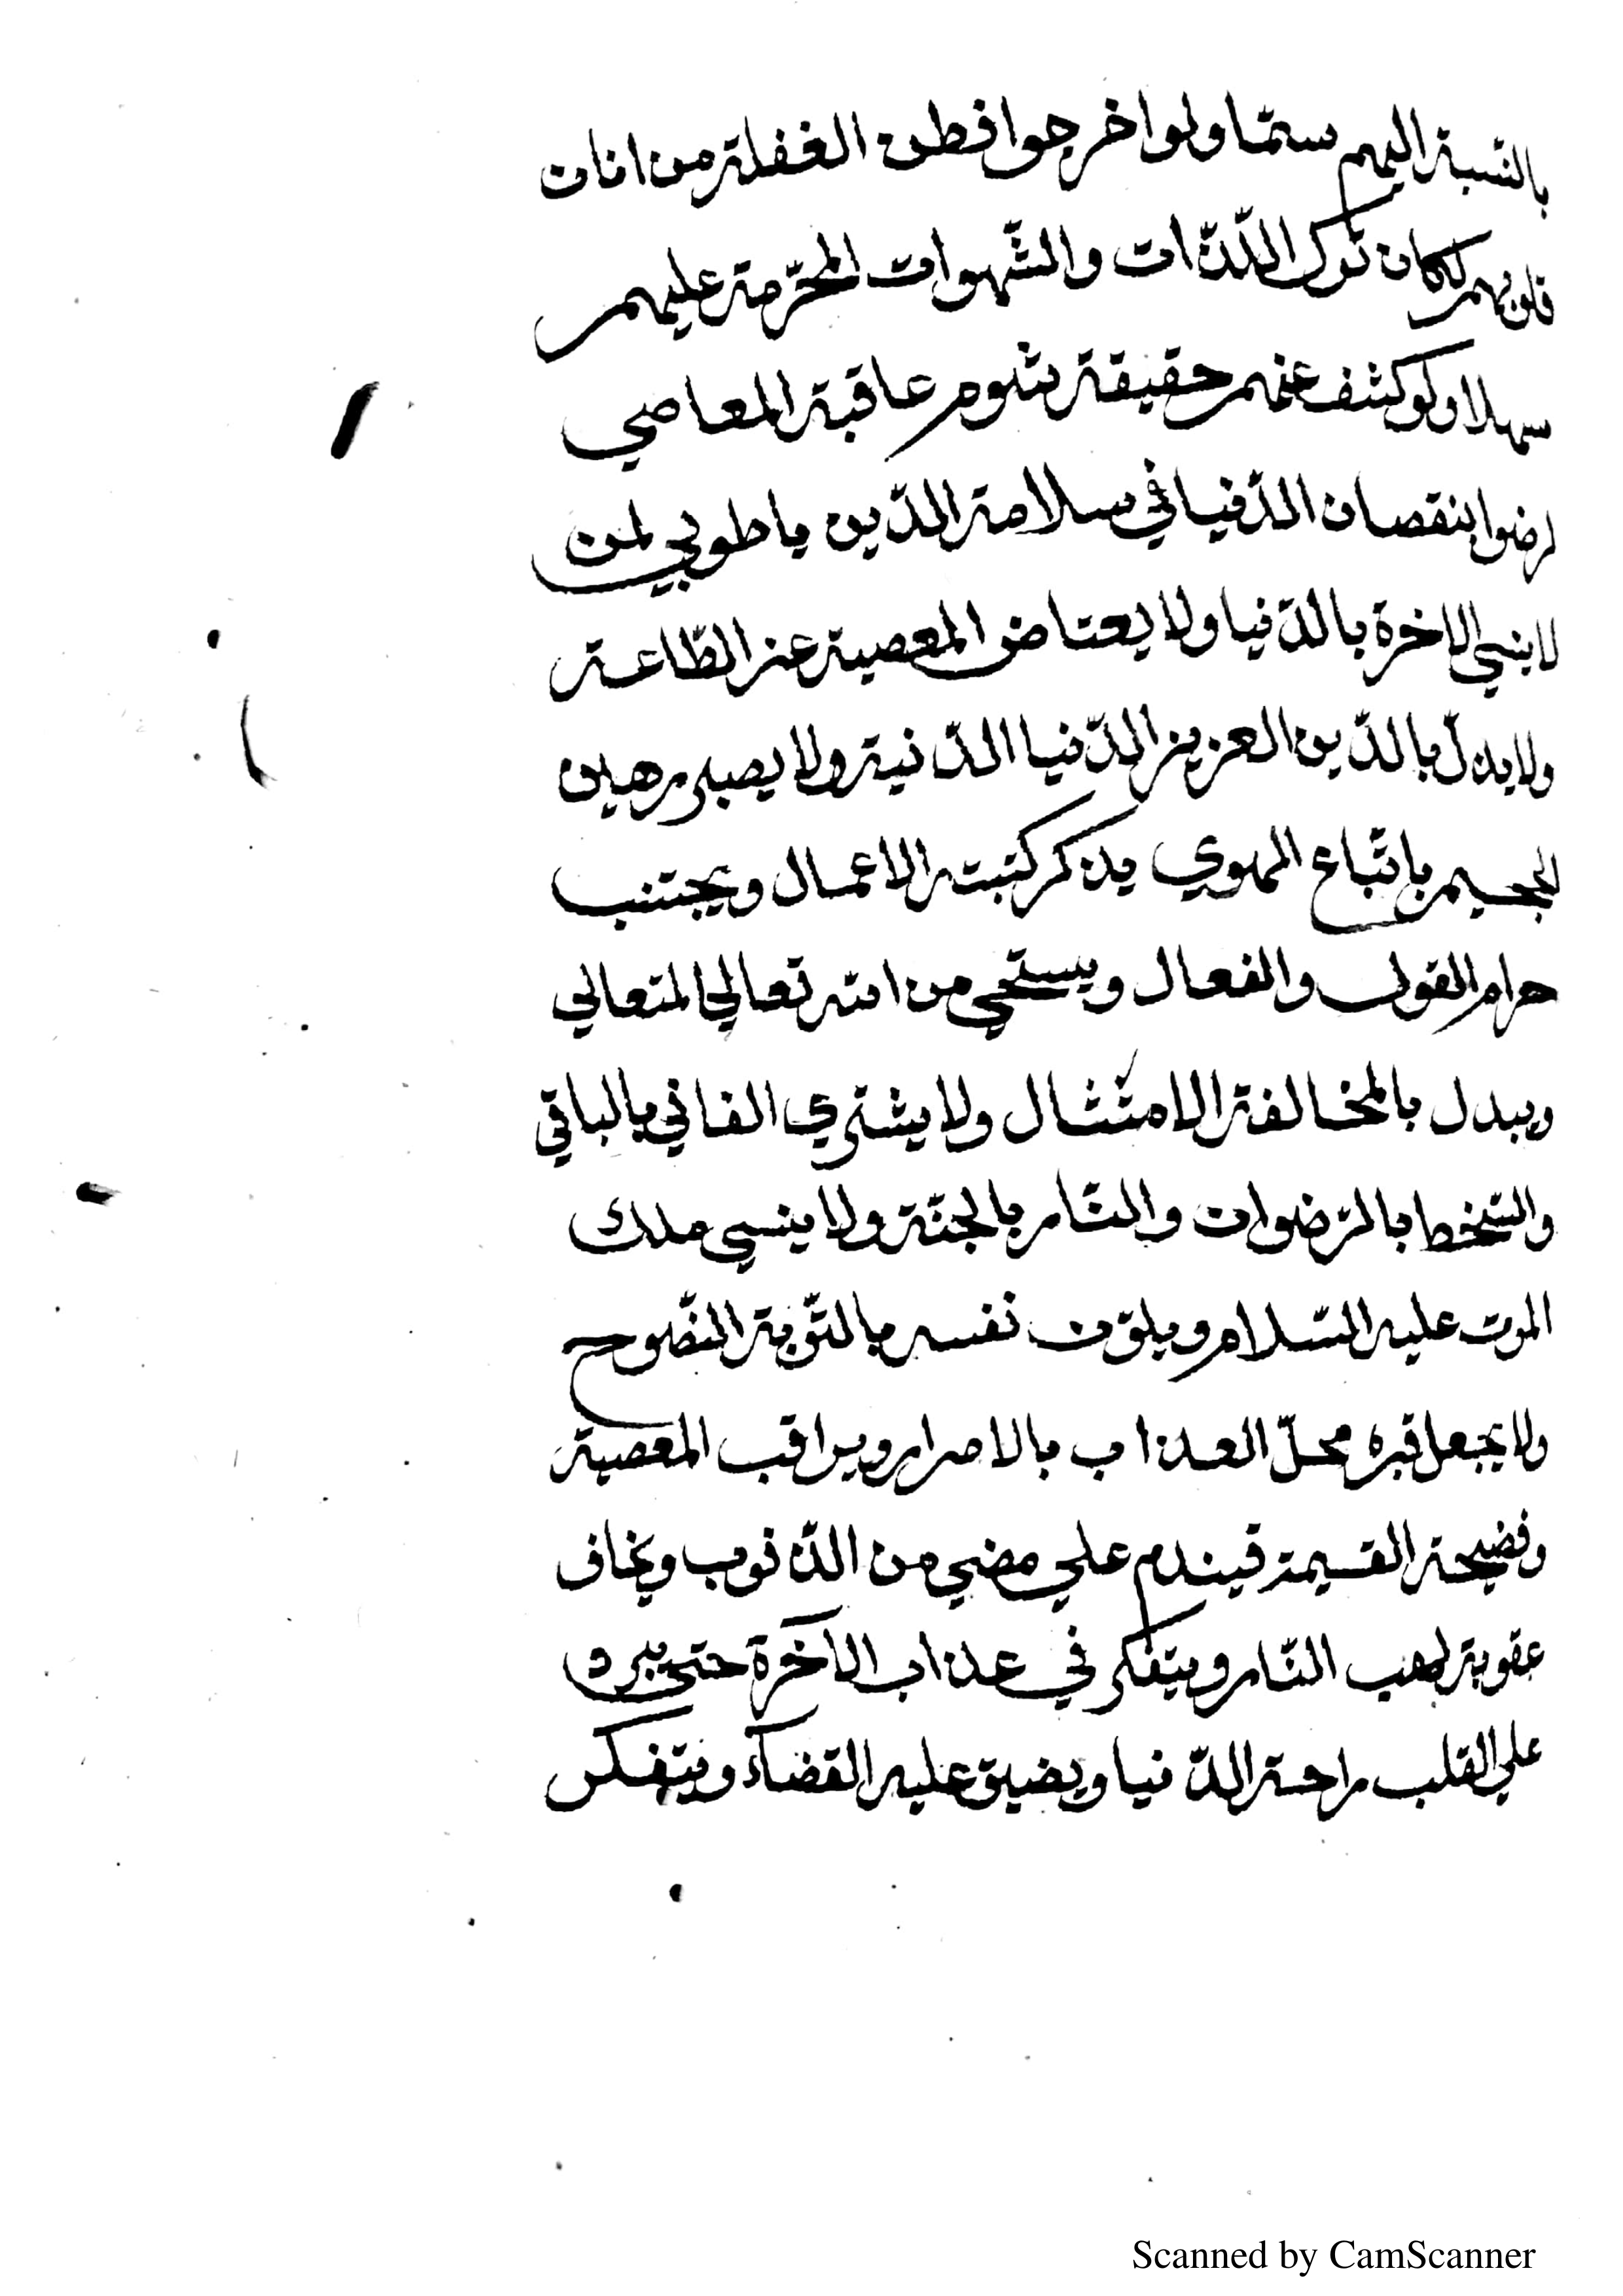 بالنسبة اليهم سمّا ولو اخرجوا قطن الغفلة من اذان
قلوبهم لكان ترك اللّذّات والشّهوات المحرّمة عليهم
سهلا ولو كشف عنهم حقيقة شوم عاقبة المعاصي
لرضوا بنقصان الدّنيا في سلامة الدّين يا طوبي لمن
لا ينسي الاخرة بالدّنيا ولا يعتاض المعصية عن الطّاعة
ولا يدلّ بالدّين العزيز الدّنيا الدّنية ولا يصير رهين
الجحيم باتّباع الهوي يذكر كتبته الاعمال ويجتنب
حرام القول والفعال ويستحي من الله تعالي المتعالي
ويبدل بالمخالفة الامتثال ولا يشتري الفاني بالباقي
والسّخط بالرّضوان والنّار بالجنّة ولا ينسي ملك
الموت عليه السّلام ويلوّن نفسه بالتّوبة النّصوح
ولا يجعل قبره محلّ العذاب بالاصرار ويراقب المعصية
وفضيحة القسيمة فيندم علي مضي من الذّنوب ويخاف
عقوبة لهب النّار ويتفكر في عذاب الآخرة حتي يبرد
علي القلب راحة الدّنيا ويضيق عليه القضاء ويتفكر
Scanned by CamScanner